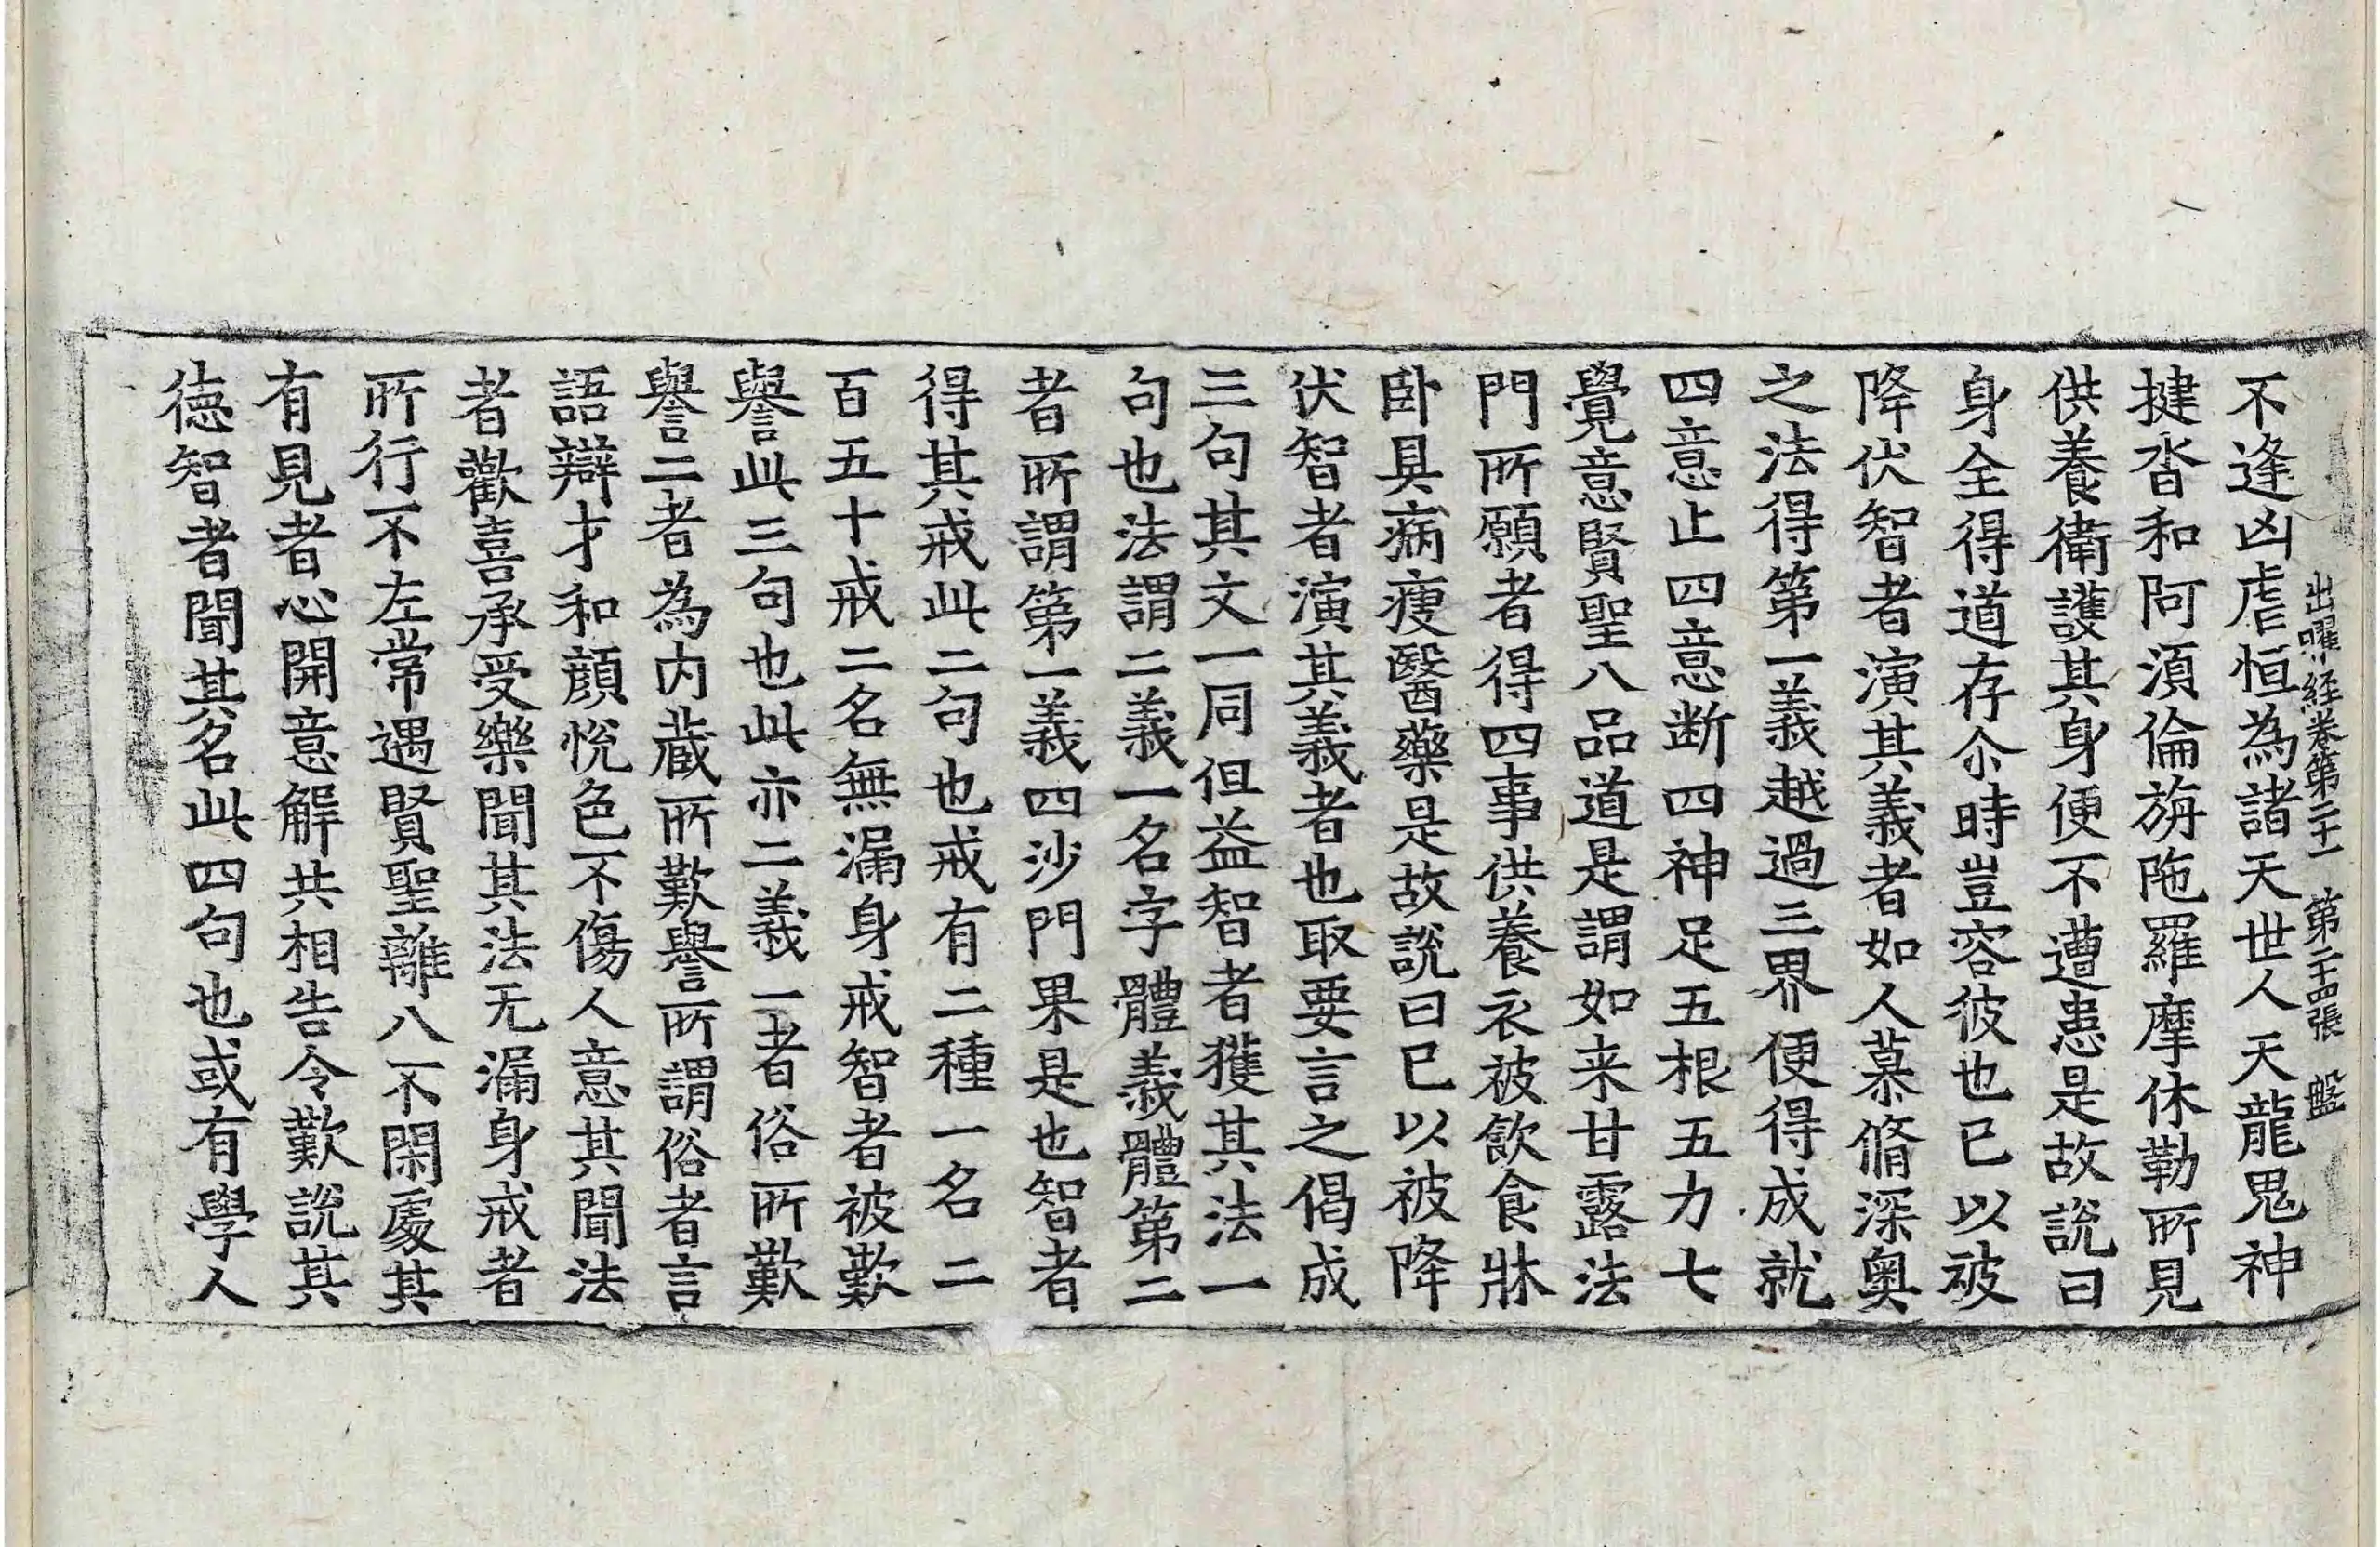 出曜經卷第二十一 第二十四張 盤
不逢凶虐恒為諸天世人天龍鬼神
揵沓和阿湏倫旃陁羅摩休勒所見
供養衛護其身便不遭患是故說曰
身全得道存尒時豈容彼也已以被
降伏智者演其義者如人慕脩深奧
之法得第一義越過三界便得成就
四意止四意断四神足五根五力七
覺意賢聖八品道是謂如来甘露法
門所願者得四事供養衣被飲食牀
卧具病瘦醫藥是故說曰已以被降
伏智者演其義者也取要言之偈成
三句其文一同但益智者獲其法一
句也法謂二義一名字體義體第二
者所謂第一義四沙門果是也智者
得其戒此二句也戒有二種一名二
百五十戒二名無漏身戒智者被歎
譽此三句也此亦二義一者俗所歎
譽二者為内藏所歎譽所謂俗者言
語辯才和顔恱色不傷人意其聞法
者歡喜承受樂聞其法无漏身戒者
所行不左常遇賢聖離八不閑處其
有見者心開意解共相告令歎說其
徳智者聞其名此四句也或有學人